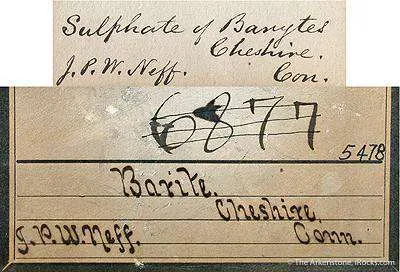 Sulphate of Barytes
Cheshire.
J. P. W. Neff. Con.
6877
5478
Barite.
Cheshire,
J. P. W. Neff. Conn.
© The Arkenstone, iRocks.com